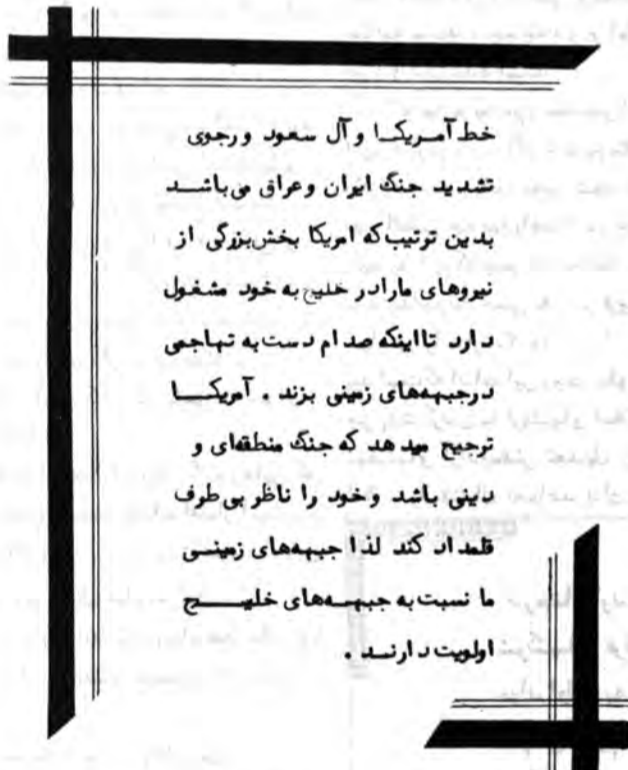 خط آمریکا و آل سعود و رجوی
تشدید جنگ ایران و عراق می‌باشد
بدین توتیب که امریکا بخش بزرگی از
نیروهای مارادر خلیج به خود مشغول
دارد تااینکه صدام دست به تهاجمی
درجبهه‌های زمینی بزند . آمریکا
ترجیح میدهد که جنگ منطقه‌ای و
دینی باشد وخود را ناظر بی طرف
قلمداد کند لذا جبهه‌های زمینی
ما نسبت به جبهه‌های خلیج
اولویت دارند .